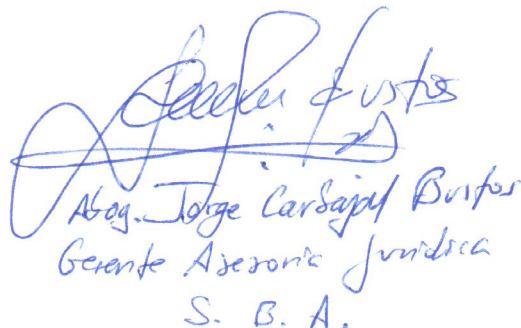 Bustos
Abog. Jorge Carbajal Bustos
Gerente Asesoria Juridica
S. B. A.